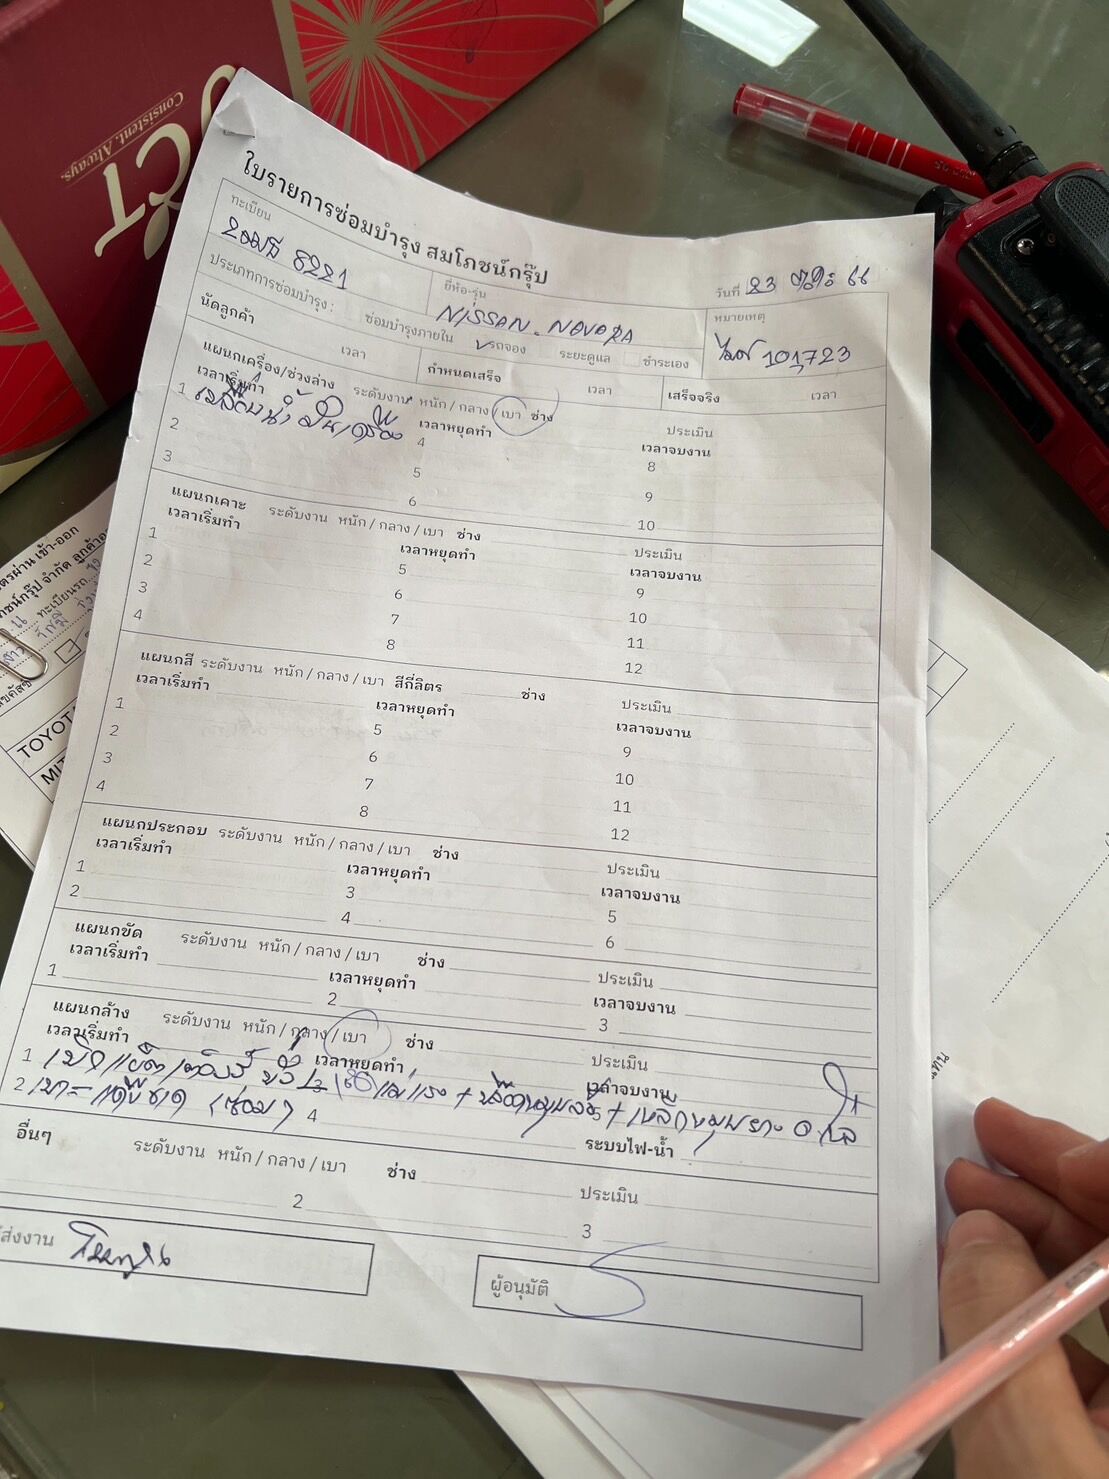 Consistent. Always.
ใบรายการซ่อมบำรุง สมโภชน์กรุ๊ป
ทะเบียน
8221
ยี่ห้อ-รุ่น
NISSAN - NAVARA
วันที่ 23 66
ประเภทการซ่อมบำรุง : ซ่อมบำรุงภายใน รถจอง ระยะดูแล ชำระเอง
หมายเหตุ
ไมล์ 101,723
นัดลูกค้า เวลา กำหนดเสร็จ เวลา เสร็จจริง เวลา
แผนกเครื่อง/ช่วงล่าง ระดับงาน หนัก / กลาง / เบา ช่าง ประเมิน
เวลาเริ่มทำ เวลาหยุดทำ เวลาจบงาน
1 4 8
2 5 9
3 6 10
แผนกเคาะ ระดับงาน หนัก / กลาง / เบา ช่าง ประเมิน
เวลาเริ่มทำ เวลาหยุดทำ เวลาจบงาน
1 5 9
2 6 10
3 7 11
4 8 12
แผนกสี ระดับงาน หนัก / กลาง / เบา สีกี่ลิตร ช่าง ประเมิน
เวลาเริ่มทำ เวลาหยุดทำ เวลาจบงาน
1 5 9
2 6 10
3 7 11
4 8 12
แผนกประกอบ ระดับงาน หนัก / กลาง / เบา ช่าง ประเมิน
เวลาเริ่มทำ เวลาหยุดทำ เวลาจบงาน
1 3 5
2 4 6
แผนกขัด ระดับงาน หนัก / กลาง / เบา ช่าง ประเมิน
เวลาเริ่มทำ เวลาหยุดทำ เวลาจบงาน
1 2 3
แผนกล้าง ระดับงาน หนัก / กลาง / เบา ช่าง ประเมิน
เวลาเริ่มทำ เวลาหยุดทำ เวลาจบงาน
1
2 (ซ่อม) 4 ระบบไฟ-น้ำ
อื่นๆ ระดับงาน หนัก / กลาง / เบา ช่าง ประเมิน
2 3
ส่งงาน
ผู้อนุมัติ
เข้า-ออก
จำกัด
ทะเบียนรถ
TOYOT